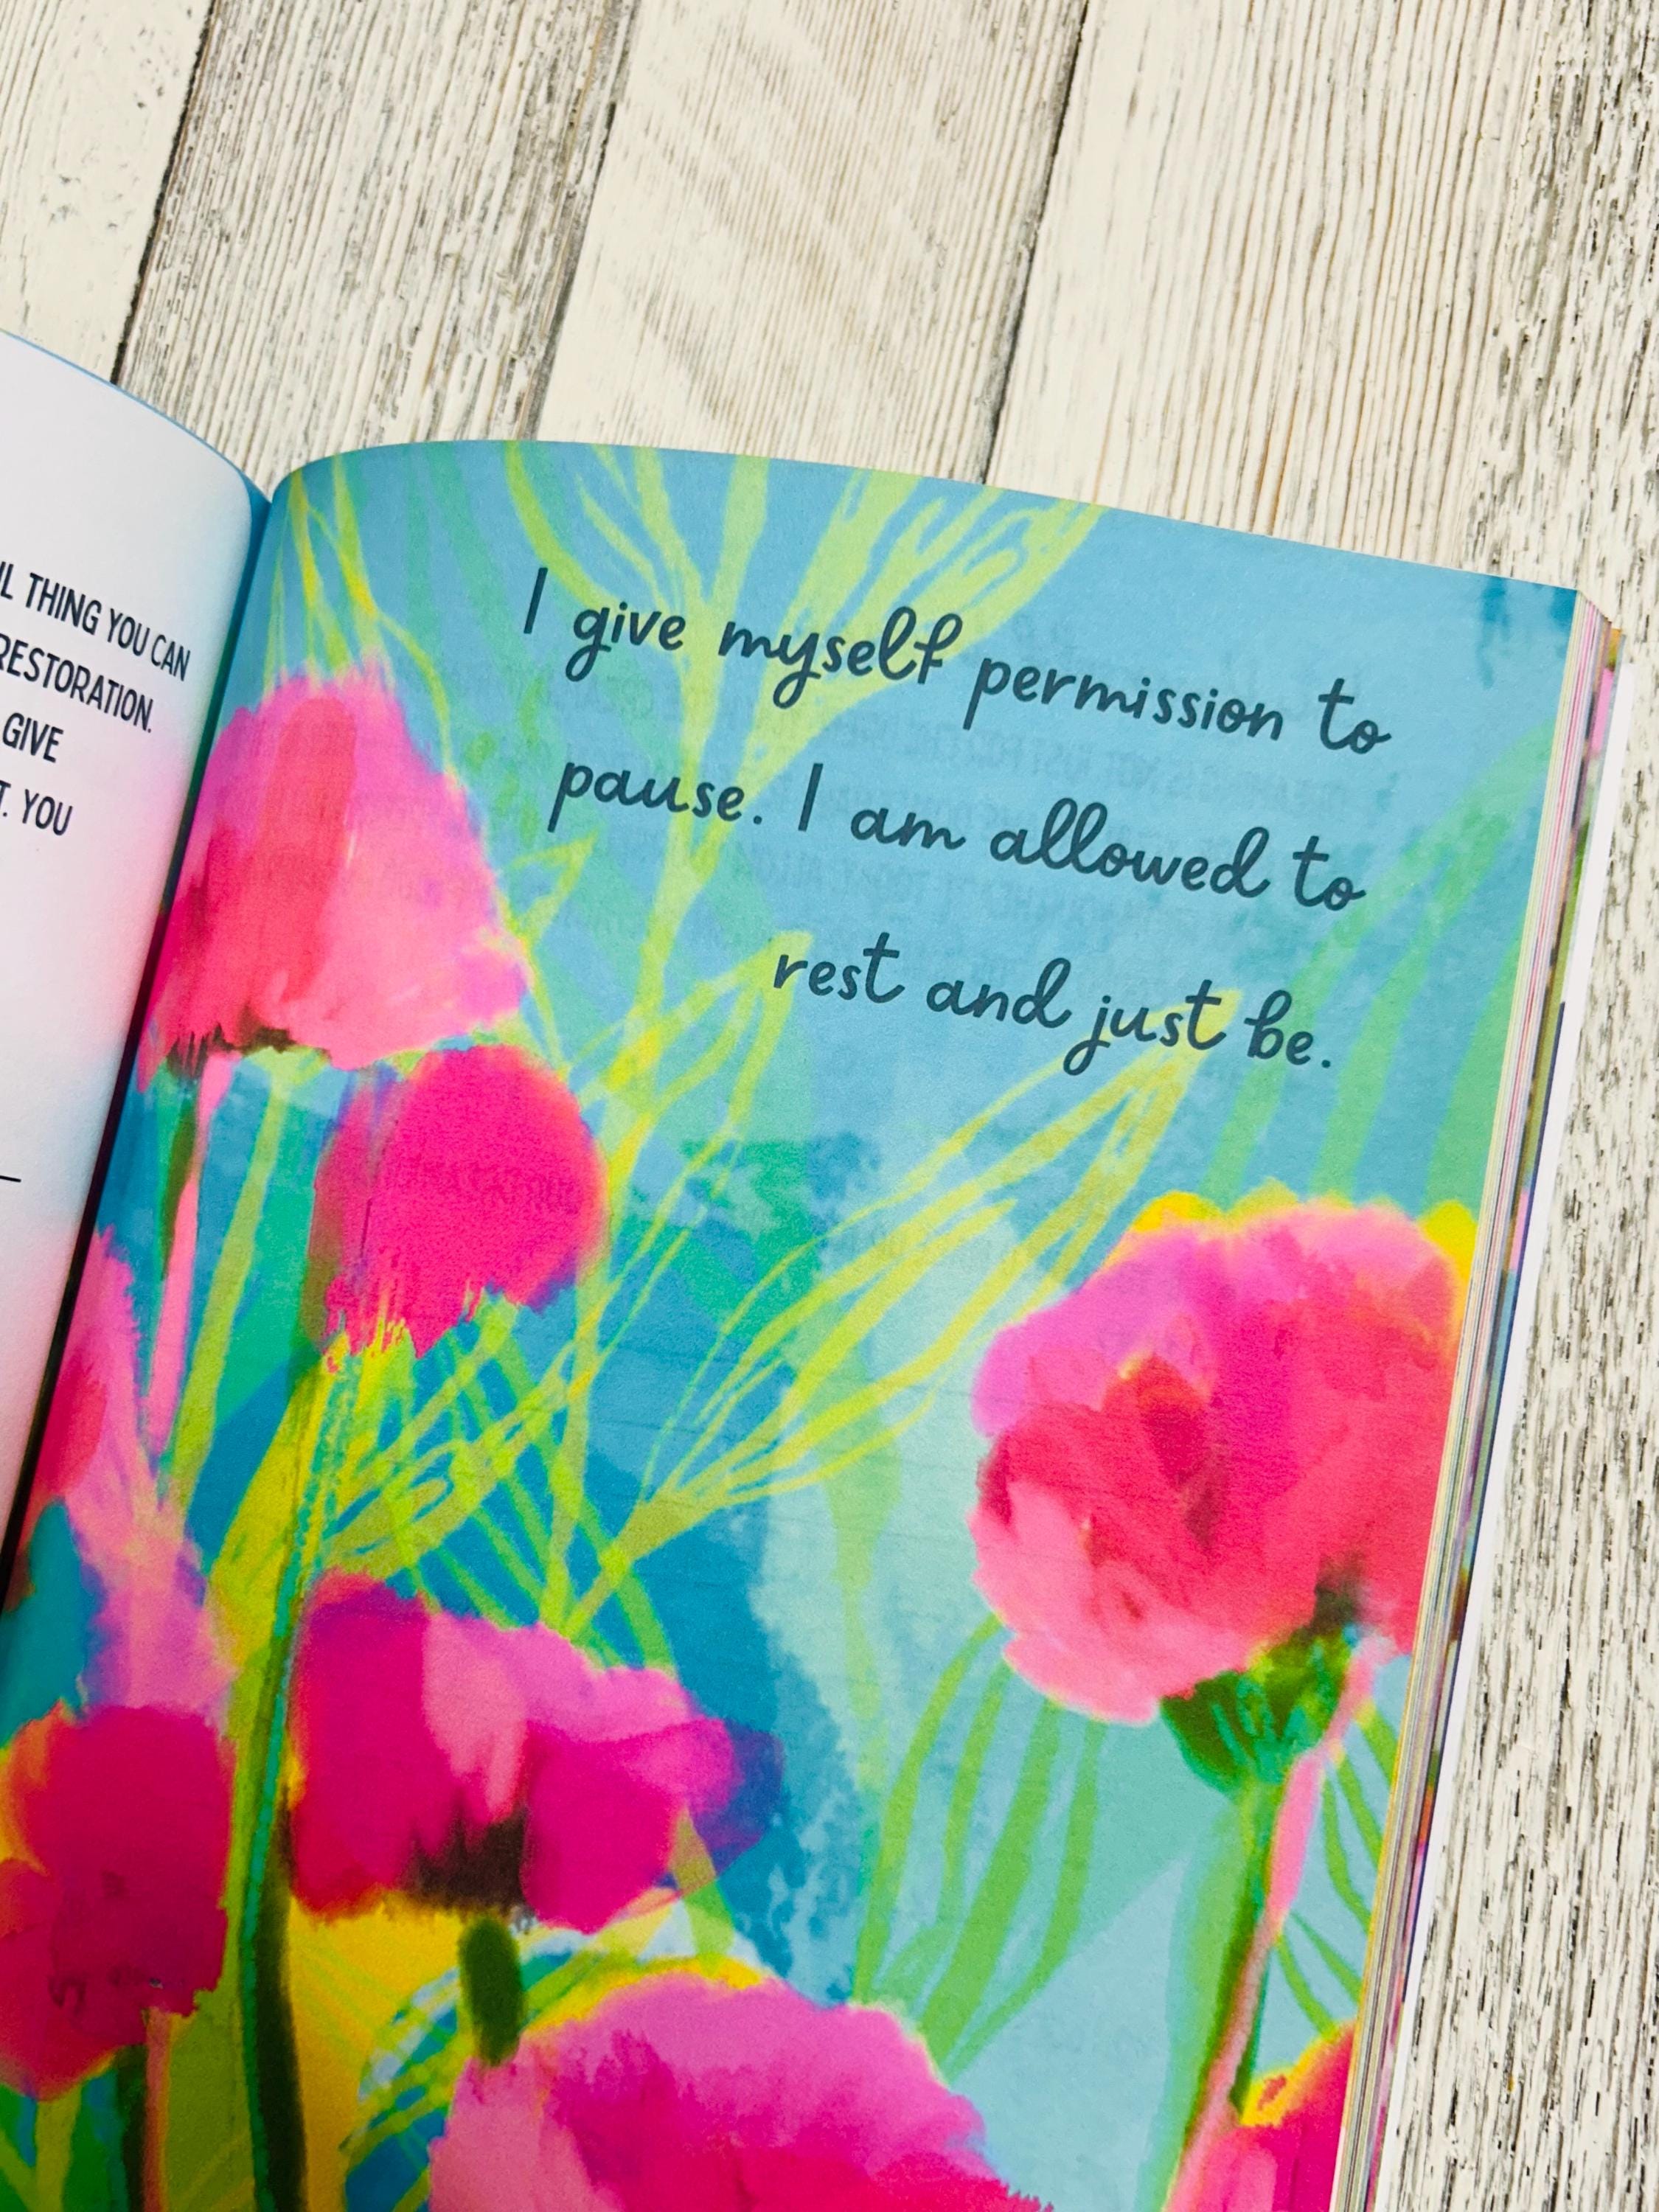 THING YOU CAN
RESTORATION.
GIVE
YOU
I give myself permission to
pause. I am allowed to
rest and just be.